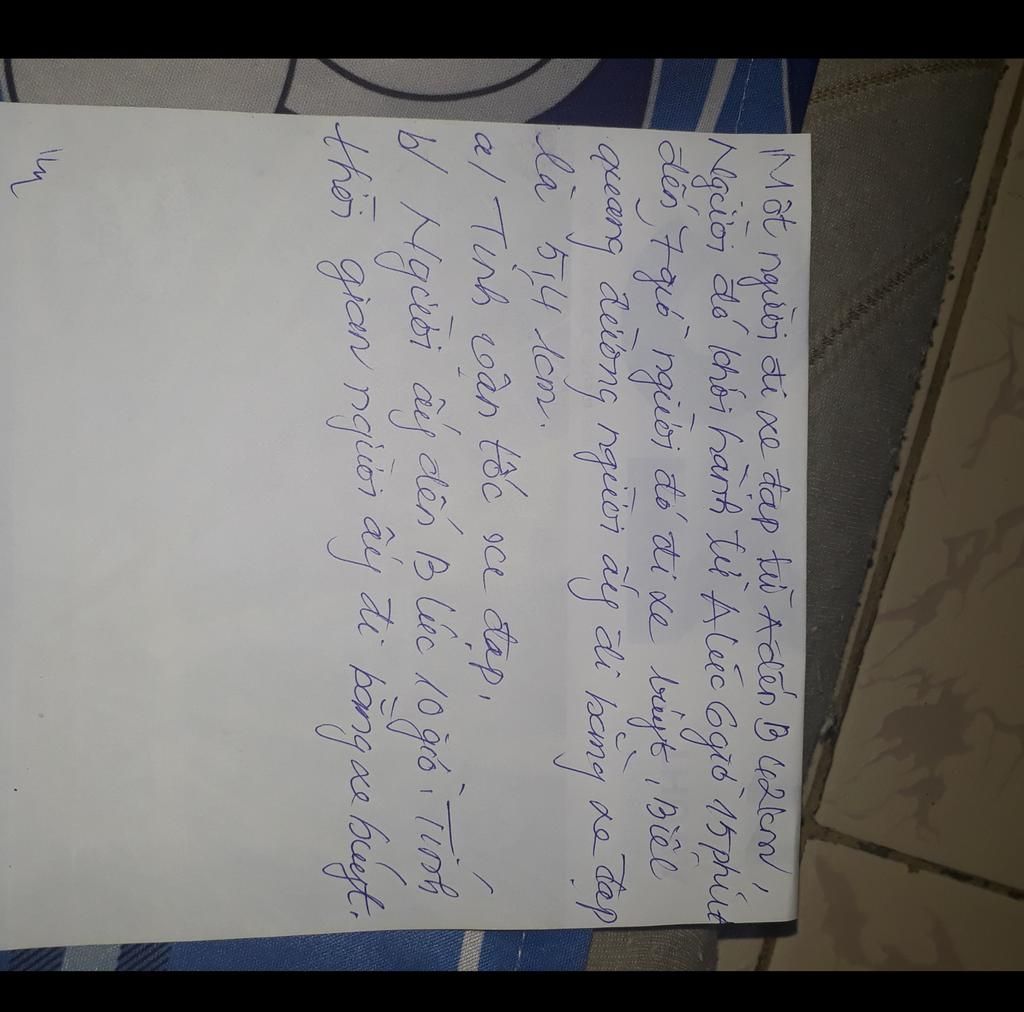 Một người đi xe đạp từ A đến B 42km
Người đó khởi hành từ A lúc 6 giờ 15 phút
đến 7 giờ người đó đi xe búyt, Biết
quang đường người ấy đi bằng xe đạp
là 5,4 km.
a/ Tính vận tốc xe đạp.
b/ Người ấy đến B lúc 10 giờ. Tính
thời gian người ấy đi bằng xe búyt.